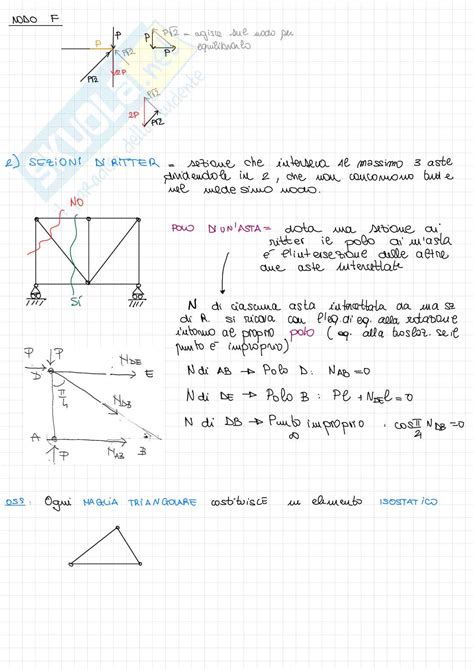 NODO F
P
P
P√2 = agisce sul nodo per
equilibrio
P
P√2
P√2
2P
P√2
2P
2) SEZIONI DI RITTER = sezione che interseca al massimo 3 aste
dividendole in 2, che non concorrono tutte
nel medesimo nodo.
NO
SÍ
POLO DI UN'ASTA = data una sezione di
Ritter il polo di un'asta
è l'intersezione delle altre
due aste intersettate
N di ciascuna asta intersettata da una sez
di R. si ricava con l'eq. di eq. alla rotazione
intorno al proprio polo (eq. alla traslaz. se il
punto è improprio)
P
P
N DE
D
E
π/4
N DB
A
P
N AB
B
N di AB → Polo D: N AB = 0
N di DE → Polo B: Pl + N DE l = 0
N di DB → Punto improprio ∞ cos π/4 N DB = 0
OSS: Ogni MAGLIA TRIANGOLARE costituisce un elemento ISOSTATICO